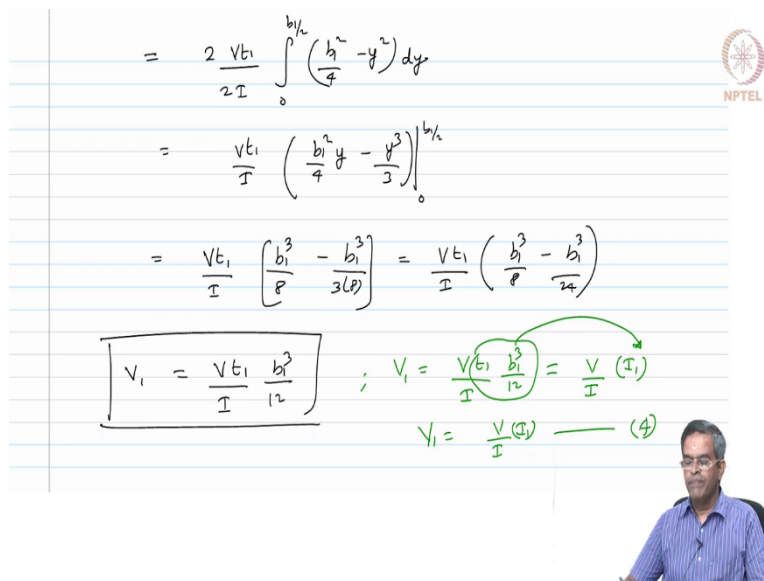 = 2 Vt₁/2I ∫₀^(b₁/2) (b₁²/4 - y²) dy
NPTEL
= Vt₁/I (b₁²y/4 - y³/3) |₀^(b₁/2)
= Vt₁/I [b₁³/8 - b₁³/3(8)] = Vt₁/I (b₁³/8 - b₁³/24)
V₁ = Vt₁/I b₁³/12 ; V₁ = Vt₁/I b₁³/12 = V/I (I₁)
V₁ = V/I (I₁) —— (4)